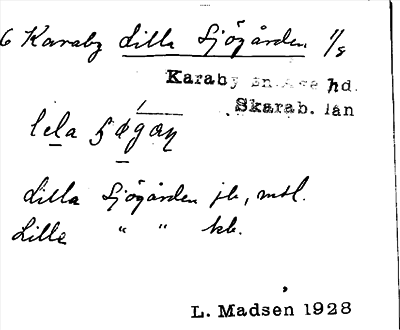 6 Karaby Lilla Sjögården 1/8
Karaby hd.
Skarab. län
lela
Lilla Sjögården jb, mtl.
Lilla " " kb.
L. Madsen 1928